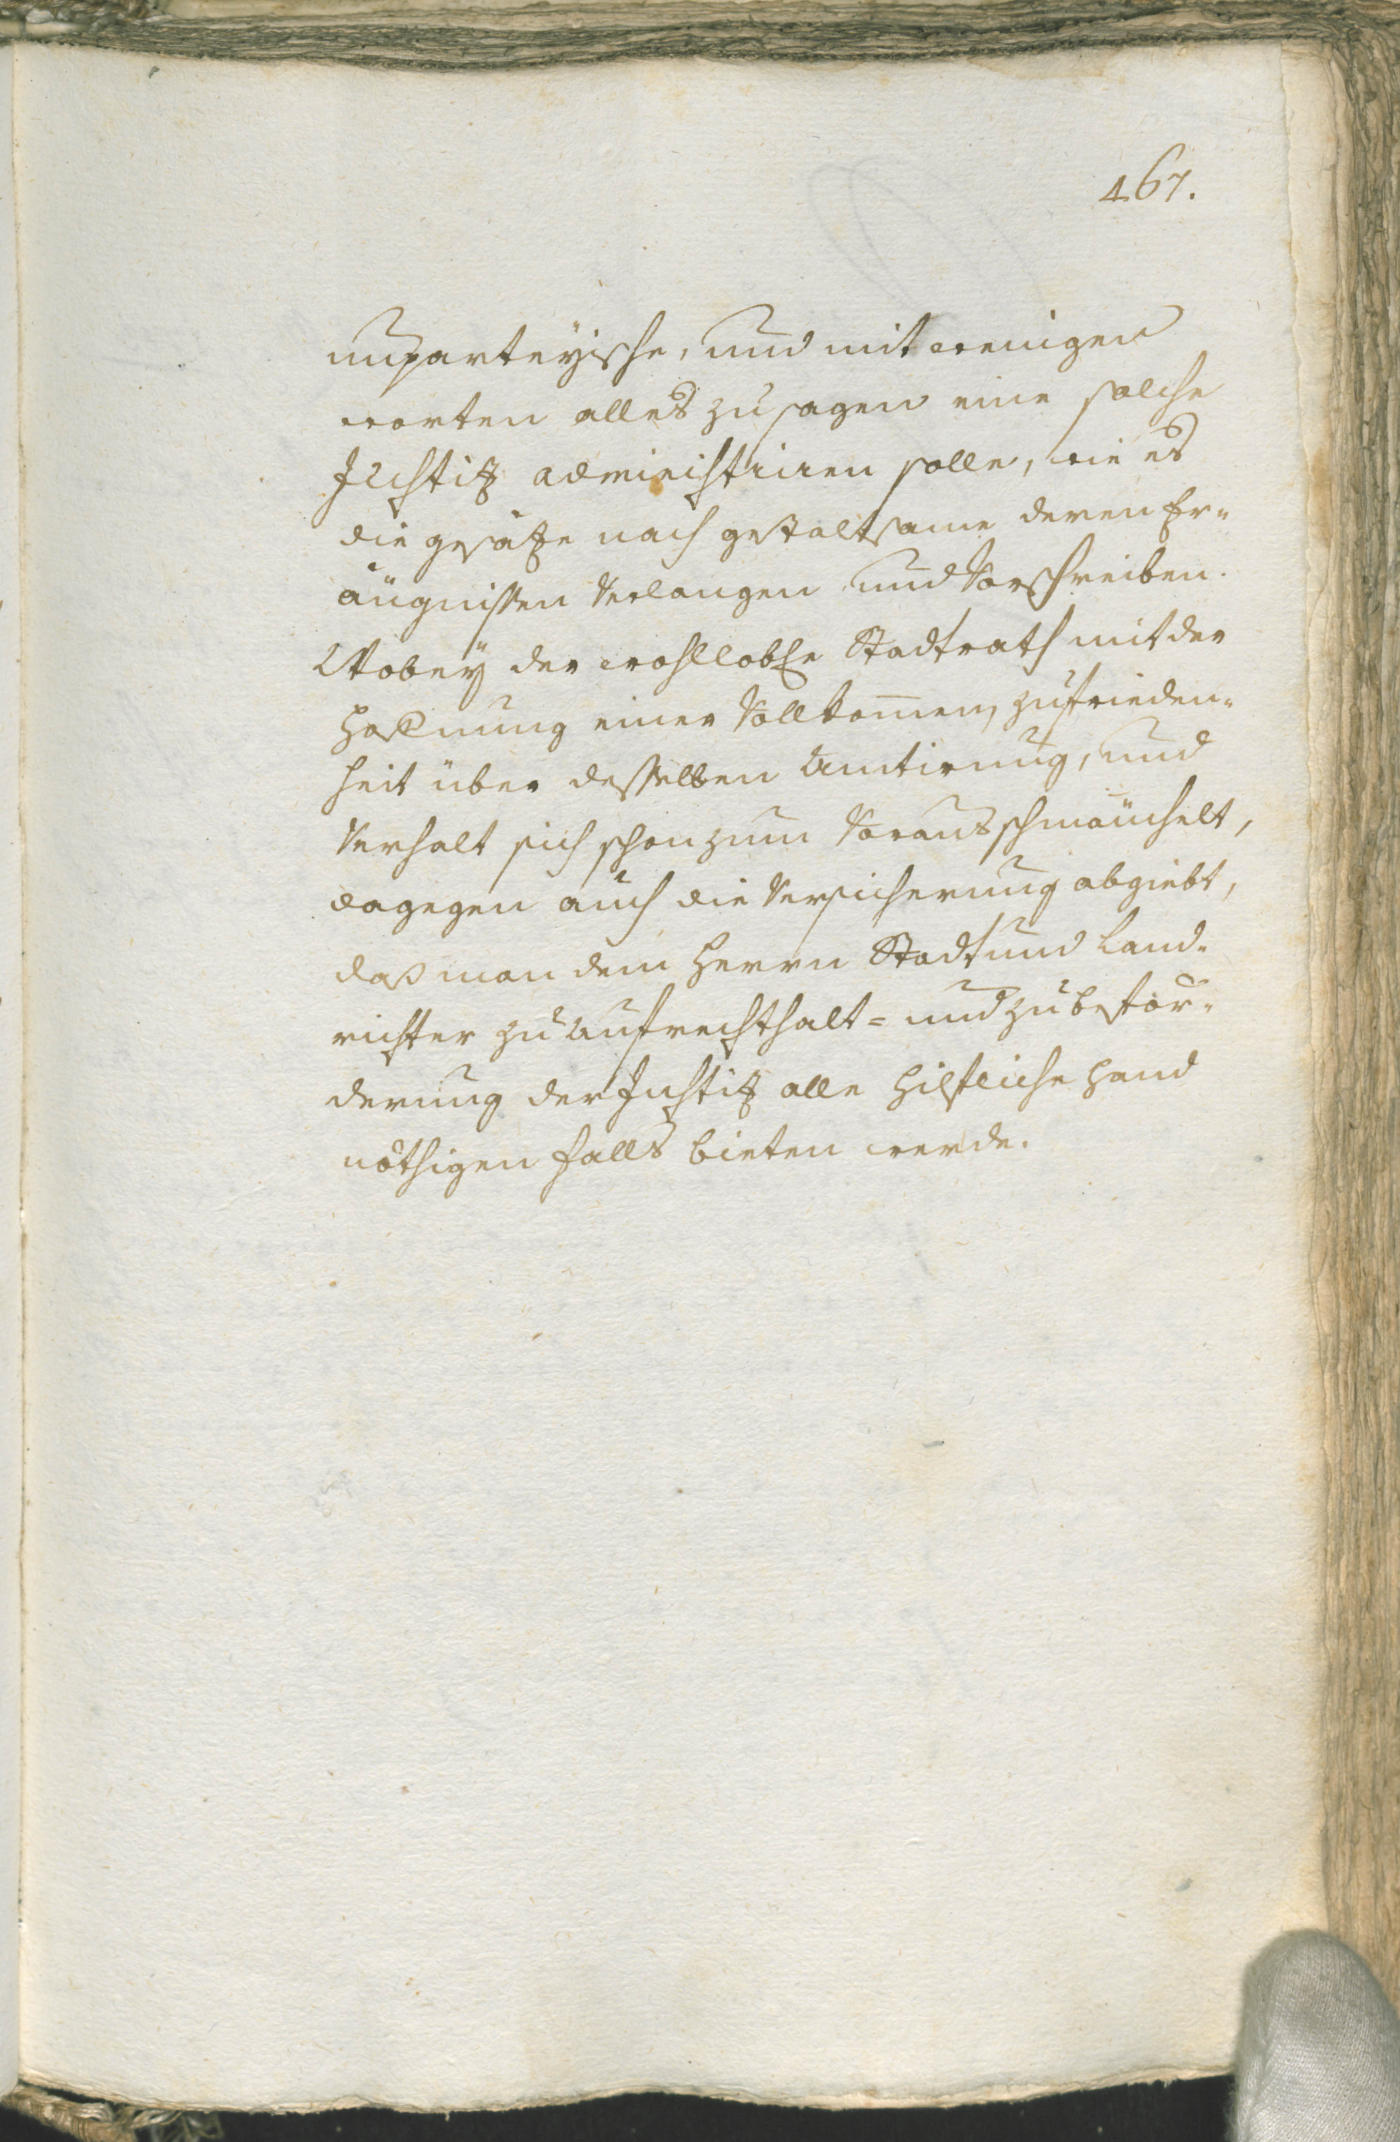 467.
unparteÿische, und mit wenigen
worten alles zu sagen eine solche
Justitz administriren solle, wie es
die gesätze nach gestaltsame deren Er-
äugnissen verlangen und vorschreiben.
Wobeÿ der wohllobl. Stadtrath mit der
Hofnung einer vollkom̄enen zufrieden-
heit über desselben Amtirung, und
verhalt sich schon zum voraus schmäuchelt,
dagegen auch die versicherung abgiebt,
daß man dem Herrn Stadt und Land-
richter zu Aufrechthalt= und zu beför-
derung der Justitz alle hilfliche hand
nöthigen falls bieten werde.